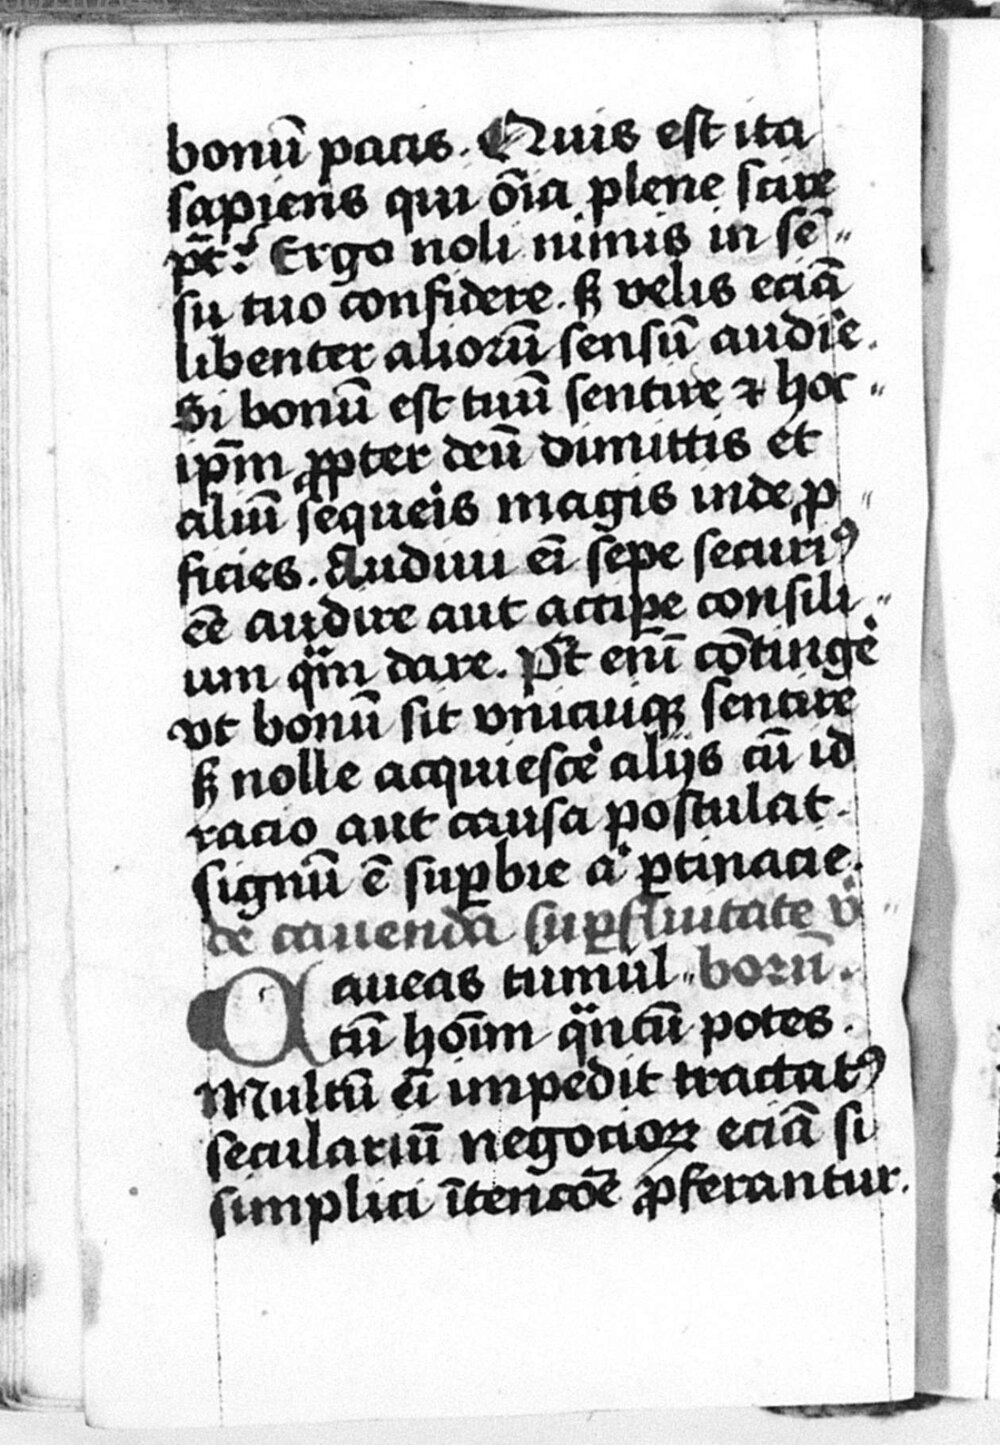 bonū pacis. Quis est ita
sapiens qui oīa plene scire
pt̄? Ergo noli nimis in sē〃
su tuo confidere. sꝫ velis eciā
libenter alioꝛū sensū audire.
Si bonū est tuū sentire ⁊ hoc〃
ip̄m ꝓpter deū dimittis et
aliū sequeris magis inde ꝓ〃
ficies. Audiui eī sepe securiꝰ
eē audire aut accipe consili〃
um qͣm dare. Pt̄ enī cōtinge͛
vt bonū sit vnicuiqꝫ sentire
sꝫ nolle acquiesce͛ alijs cū id
racio aut causa postulat.
signū ē suꝑbie aͭ ꝑtinacie.
de cauenda suꝑfluitate v̓〃
Caueas tumul〃 boꝛū.
tū hoīm qͣntū potes.
Multū eī impedit tractatꝰ
seculariū negocioꝝ eciā si
simplici ītencōe ꝓferantur.